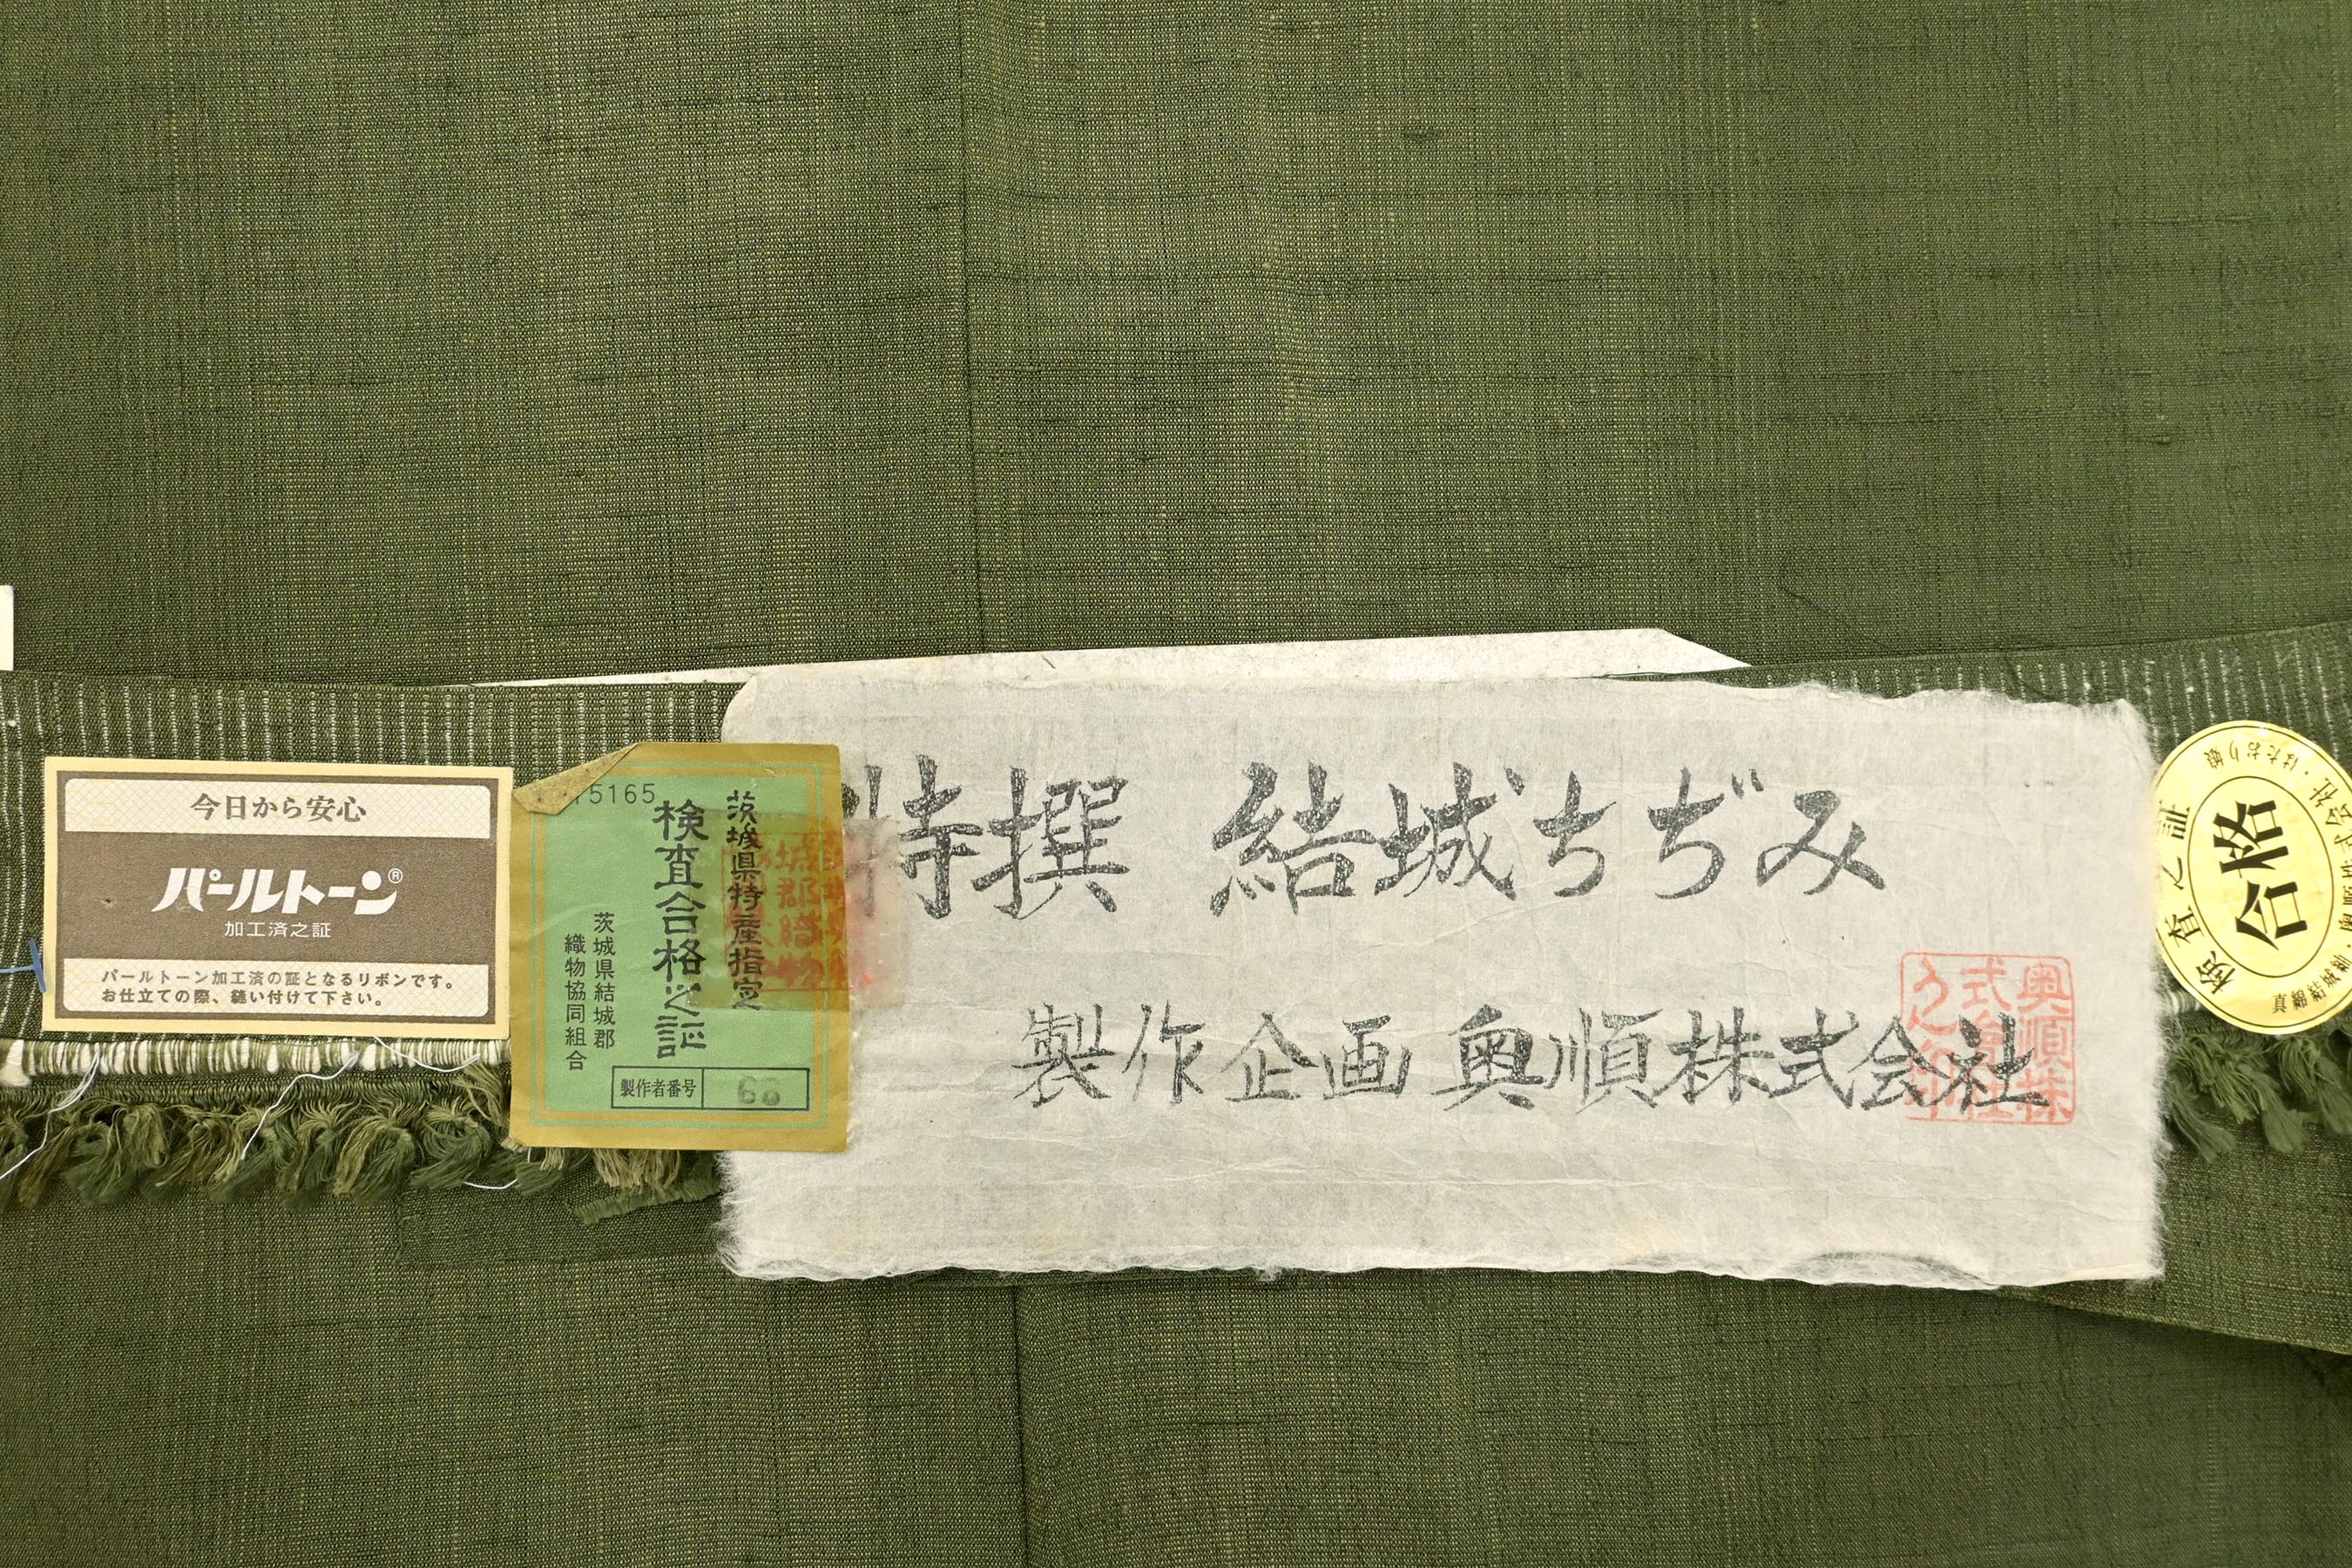 今日から安心
パールトーン®
加工済之証
パールトーン加工済の証となるリボンです。
お仕立ての際、縫い付けて下さい。
5165
茨城県特産指定
検査合格之証
茨城県結城郡
織物協同組合
製作者番号
特撰 結城ちぢみ
製作企画 奥順株式会社
奥順株
式會社
検査之証
合格
はたおり娘